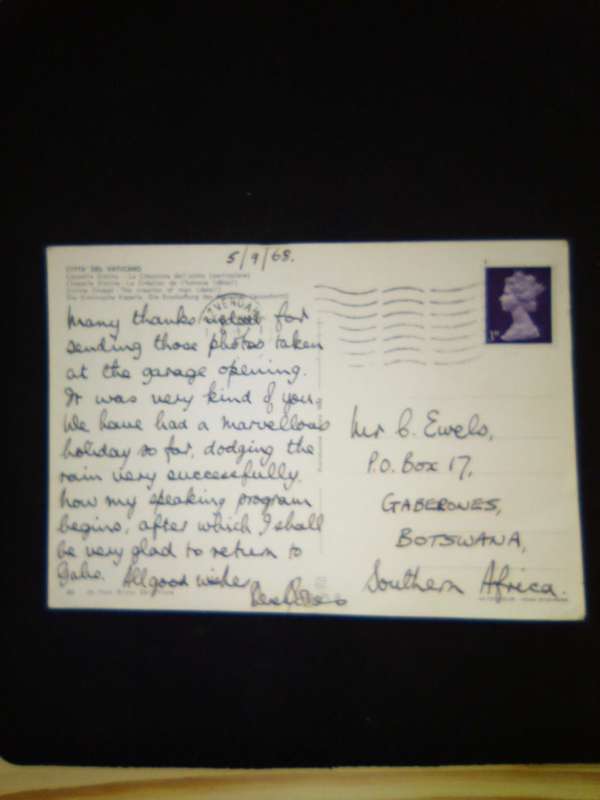 5/9/68.
CITTA' DEL VATICANO
Many thanks indeed for
sending those photos taken
at the garage opening.
It was very kind of you.
We have had a marvellous
holiday so far, dodging the
rain very successfully.
Now my speaking program
begins, after which I shall
be very glad to return to
Gabs. All good wishes
Mr C. Ewels,
P.O. Box 17,
GABERONES,
BOTSWANA,
Southern Africa.